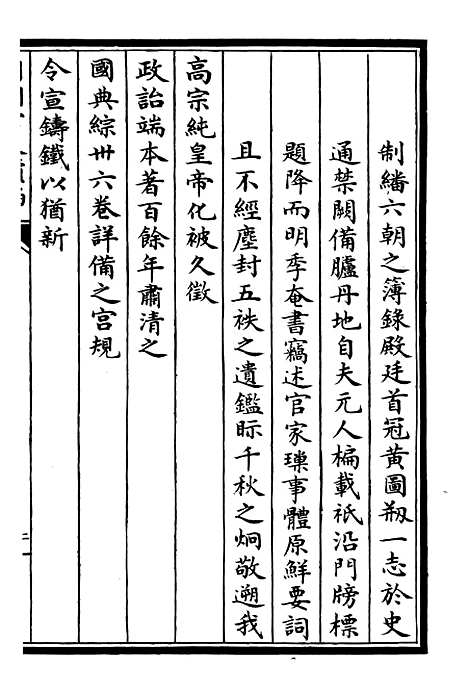 制繙六朝之簿錄殿廷首冠黃圖剏一志於史
通禁闕備臚丹地自夫元人楄載祇沿門牓標
題降而明季奄書竊述官家璅事體原鮮要詞
且不經塵封五袟之遺鑑眎千秋之炯敬遡我
高宗純皇帝化被久徵
政詒端本著百餘年肅清之
國典綜卅六卷詳備之宮規
令宣鑄鐵以猶新